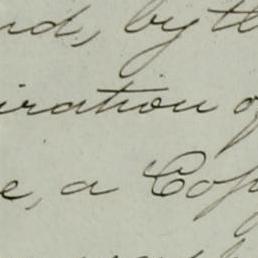 nd, by th
iration of
e, a Cop